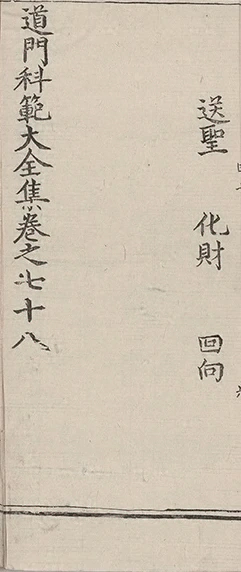 送聖 化財 回向
道門科範大全集卷之七十八